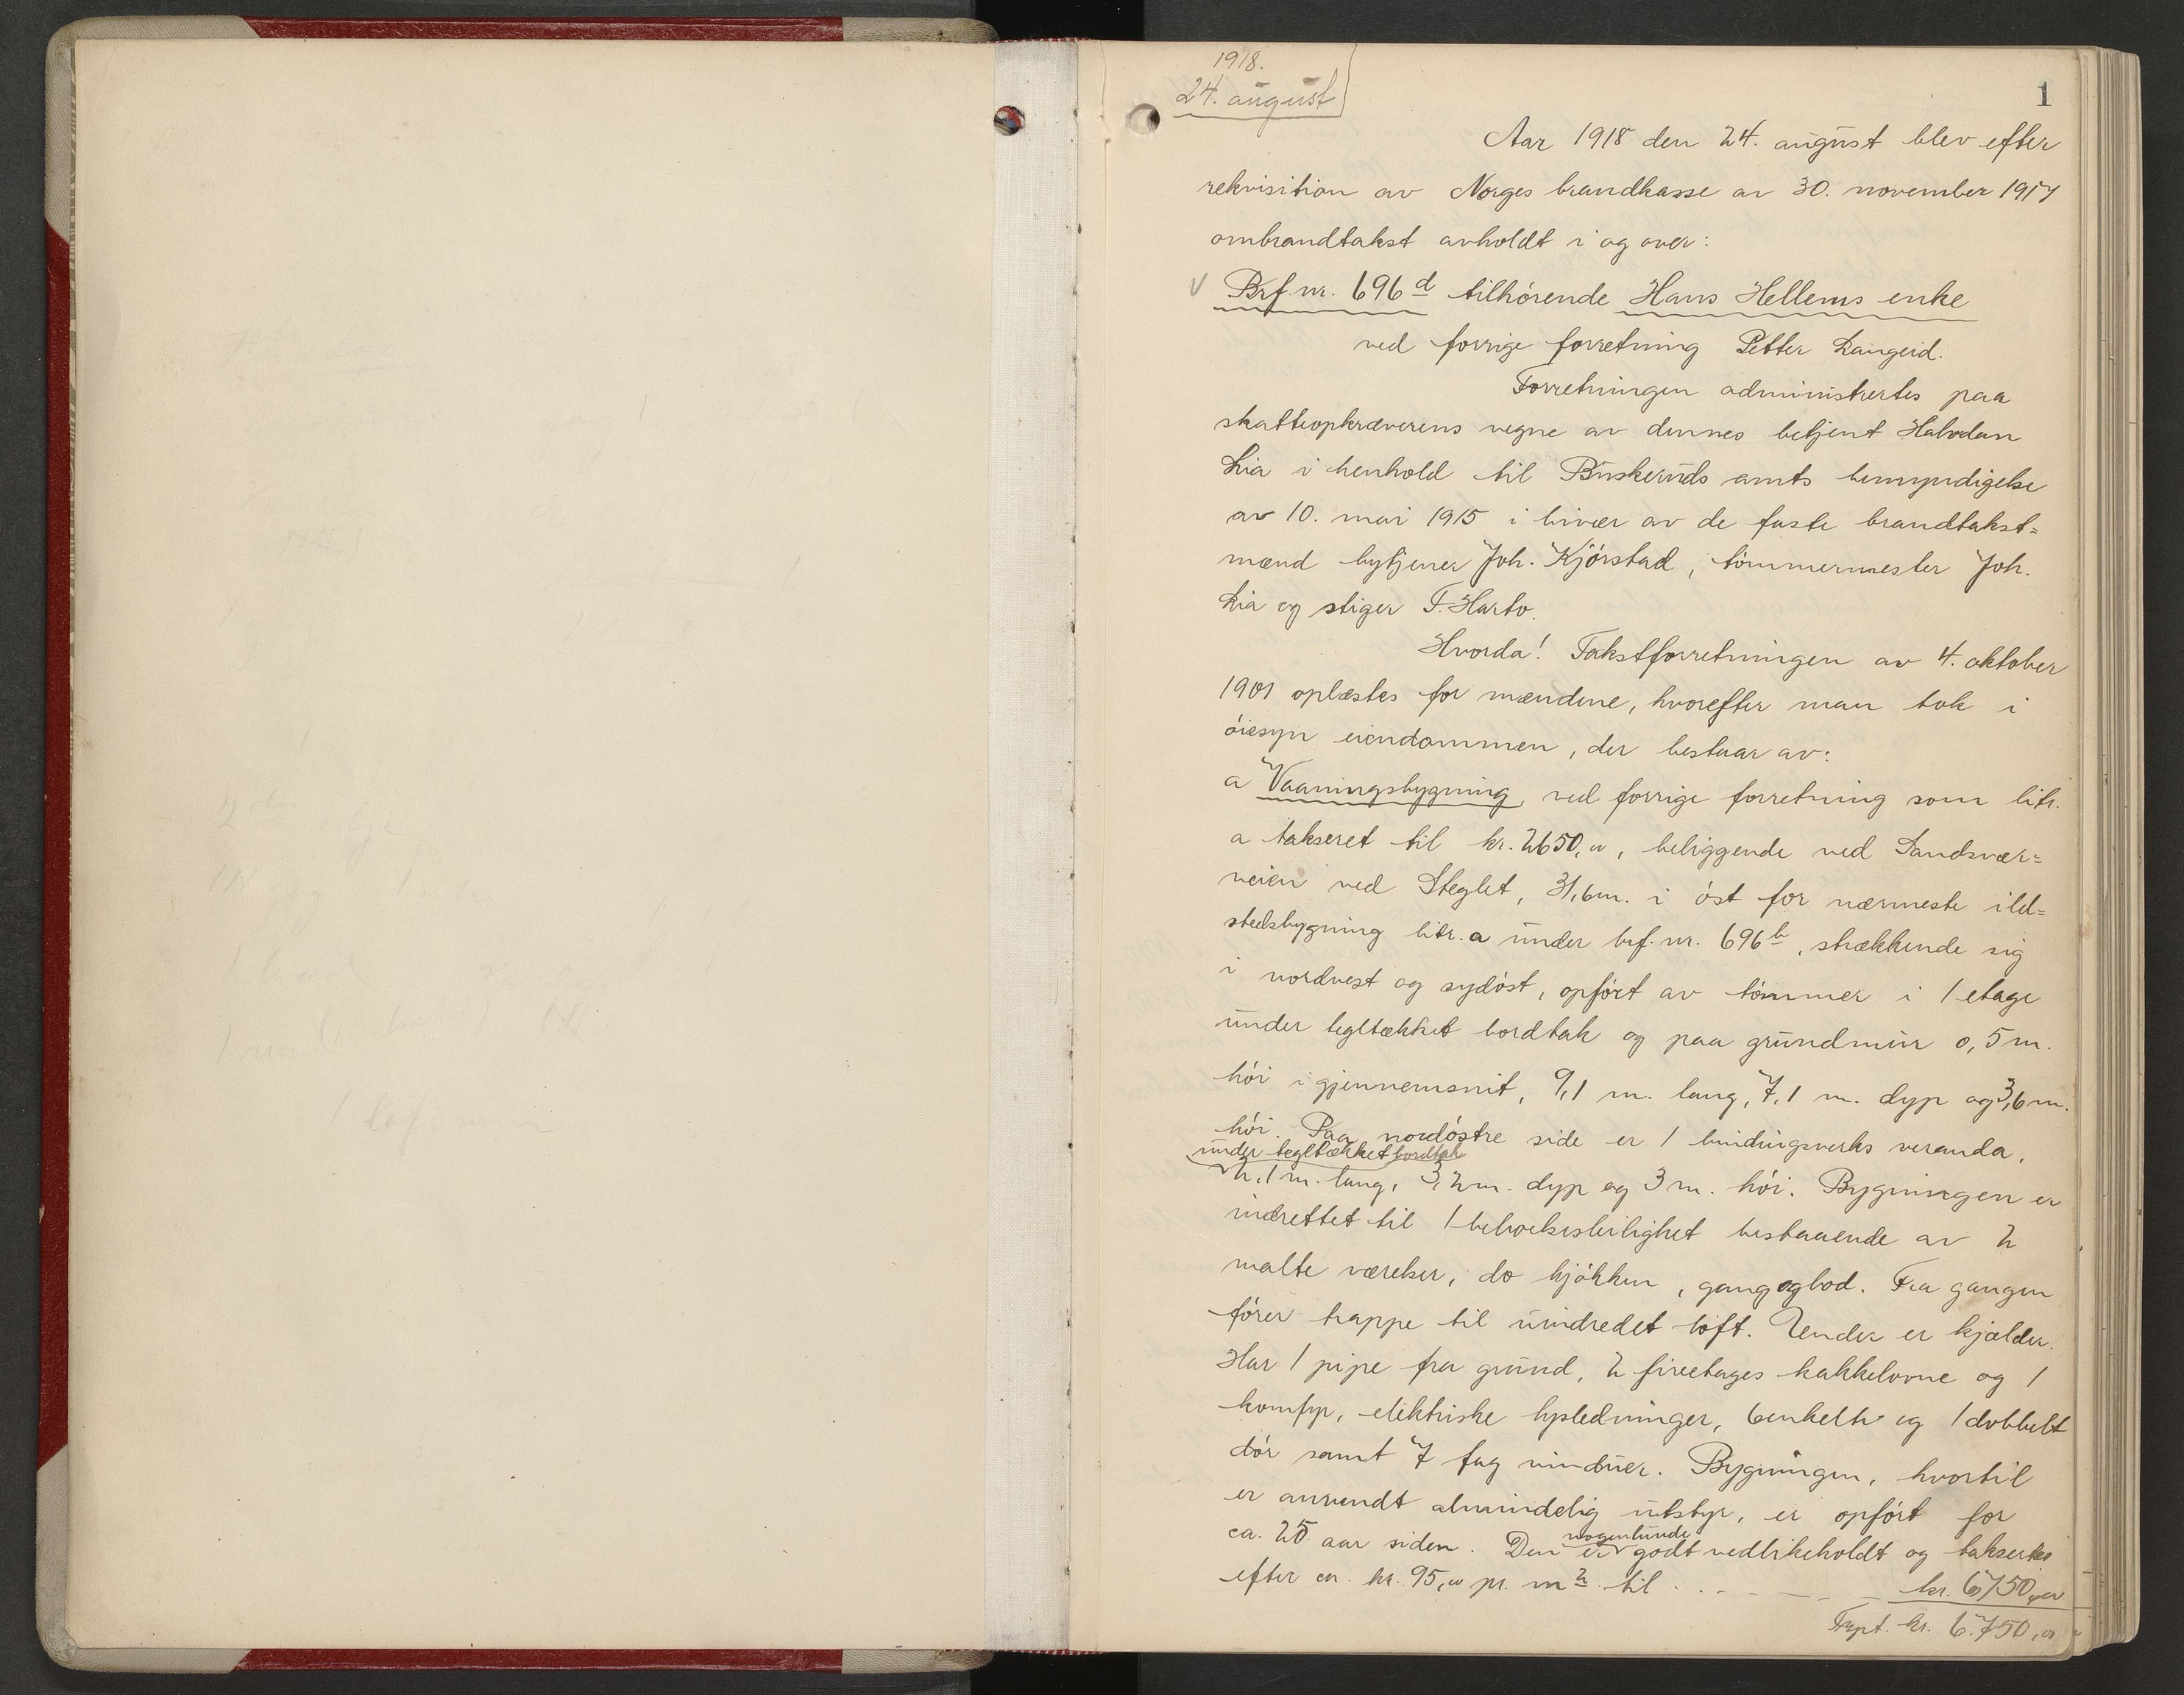 1918.
24. august
1
Aar 1918 den 24. august blev efter
rekvisition av Norges brandkasse av 30. november 1917
ombrandtakst avholdt i og over:
Brf. nr. 696 d tilhørende Hans Hellems enke
ved forrige forretning Petter Langerid.
Forretningen administrertes paa
skatteopkræverens vegne av dennes betjent Halvdan
Lia i henhold til Buskeruds amts bemyndigelse
av 10. mai 1915 i hivær av de faste brandtakst=
mænd bytjener Joh. Kjørstad, tømmermester Joh.
Lia og stiger T. Harto.
Hvorda! Takstforretningen av 4. oktober
1901 oplæstes for mændene, hvorefter man tok i
øiesyn eiendommen, der bestaar av:
a Vaaningsbygning, ved forrige forretning som litr.
a takseret til kr. 2650,00, beliggende ved Sandsvær=
veien ved Steglet, 31,6 m. i øst for nærmeste ild=
stedsbygning litr. a under brf. nr. 696 b, strækkende sig
i nordvest og sydøst, opført av tømmer i 1 etage
under tegltækket bordtak og paa grundmur 0,5 m.
høi i gjennemsnit, 9,1 m. lang, 7,1 m. dyp og 3,6 m.
høi. Paa nordøstre side er 1 bindingsverks veranda,
under tegltækket bordtak
2,1 m. lang, 3,2 m. dyp og 3 m. høi. Bygningen er
indrettet til 1 beboelsesleilighet bestaaende av 2
malte værelser, do kjøkken, gang og bod. Fra gangen
fører trappe til uindredet loft. Under er kjælder.
Har 1 pipe fra grund, 2 fireetages kakkelovne og 1
komfyr, elektriske lysledninger, 6 enkelte og 1 dobbelt
dør samt 7 fag vinduer. Bygningen, hvortil
er anvendt almindelig utstyr, er opført for
ca. 25 aar siden. Den er nogenlunde godt vedlikeholdt og takseres
efter ca. kr. 95,00 pr. m 2 til - - - kr. 6750,00
Trpt. kr. 6.750,00